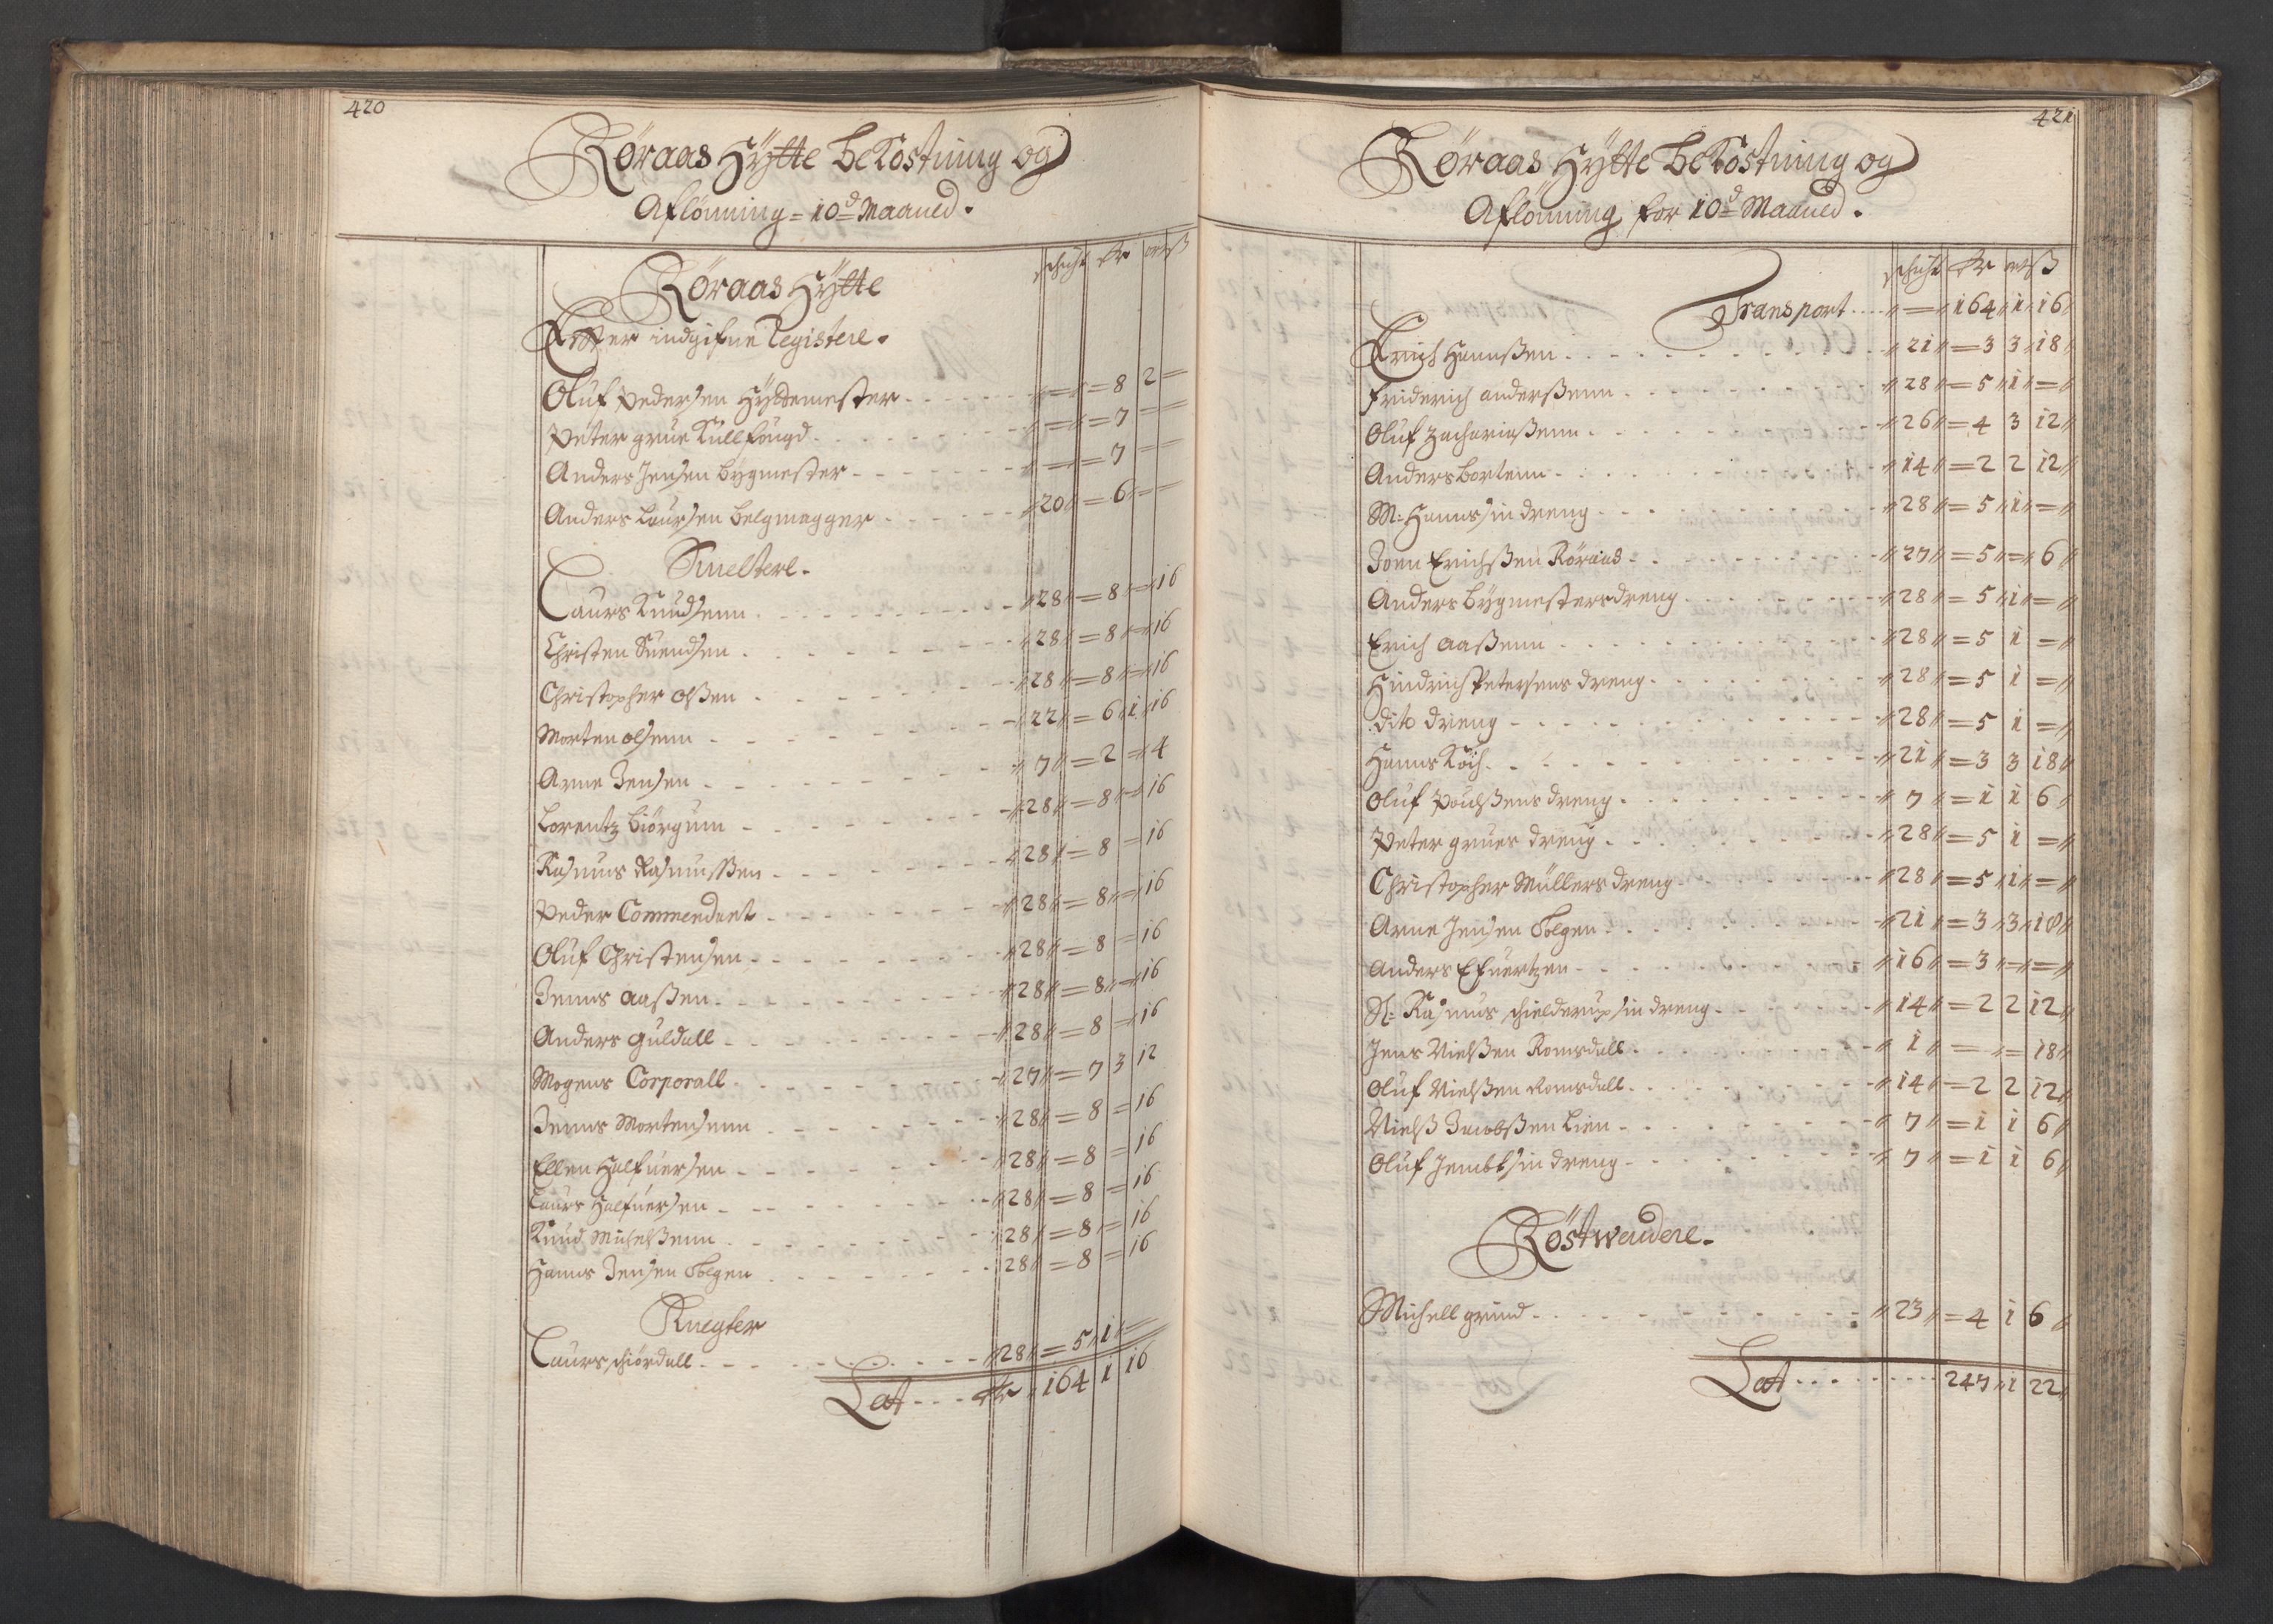 420
Røraas Hÿtte beKostning og
Aflønning = 10d Maaned.
schicht Rdr ort ß
Røraas Hÿtte
Effter indgifne Registere.
Oluf Pedersen Hÿttemester - - - = = 8 2 =
Peter grue Kullfougd - - - = = 7 = =
Anders Jensen bÿgmester - - - = = 7 = =
Anders Laursen belgmagger - - - 20 = 6 = =
Smeltere.
Laurs Knudsenn - - - 28 = 8 = 16
Christen Suendsen - - - 28 = 8 = 16
Christopher Olßen - - - 28 = 8 = 16
Morten Olsenn - - - 22 = 6 1 16
Arne Jensen - - - 7 = 2 = 4
Lorentz Biörgum - - - 28 = 8 = 16
Rasmus Rasmusßen - - - 28 = 8 = 16
Peder Commendant - - - 28 = 8 = 16
Oluf Christensen - - - 28 = 8 = 16
Jenns Aaßen - - - 28 = 8 = 16
Anders Guldall - - - 28 = 8 = 16
Mogens Corporall - - - 27 = 7 3 12
Jenns Mortensenn - - - 28 = 8 = 16
Ellen Halfuersen - - - 28 = 8 = 16
Laurs Halfuersen - - - 28 = 8 = 16
Knud Michelßenn - - - 28 = 8 = 16
Hanns Jensen Tolgen - - - 28 = 8 = 16
Knegter
Laurs schiördall - - - 28 = 5 1 =
Lat - - - Rdr 164 1 16
421
Røraas Hÿtte beKostning og
Aflønning for 10d Maaned.
schicht Rdr ort ß
Transport - - - = 164 1 16
Erich Hannßen - - - 21 = 3 3 18
Friderich anderßenn - - - 28 = 5 1 =
Oluf Zachariaßenn - - - 26 = 4 3 12
Anders Bortenn - - - 14 = 2 2 12
M: Hanns sin dreng - - - 28 = 5 1 =
Joen Erichßen Röraas - - - 27 = 5 = 6
Anders Bÿgmesters dreng - - - 28 = 5 1 =
Erich Aaßenn - - - 28 = 5 1 =
Hindrich Petersens dreng - - - 28 = 5 1 =
dito dreng - - - 28 = 5 1 =
Hanns Koch - - - 21 = 3 3 18
Oluf Pouelßens dreng - - - 7 = 1 1 6
Peter grues dreng - - - 28 = 5 1 =
Christopher Müllers dreng - - - 28 = 5 1 =
Arne Jensen Tolgen - - - 21 = 3 3 18
Anders Efuertzen - - - 16 = 3 = =
Hr: Rasmus schielderup sin dreng - - - 14 = 2 2 12
Jens Nielßen Romsdall - - - 1 = = 18
Oluf Nielßen Romsdall - - - 14 = 2 2 12
Nielß Jacobßen Lien - - - 7 = 1 1 6
Oluf Jembt sin dreng - - - 7 = 1 1 6
Röstwendere.
Michell grind - - - 23 = 4 1 6
Lat - - - 247 1 22